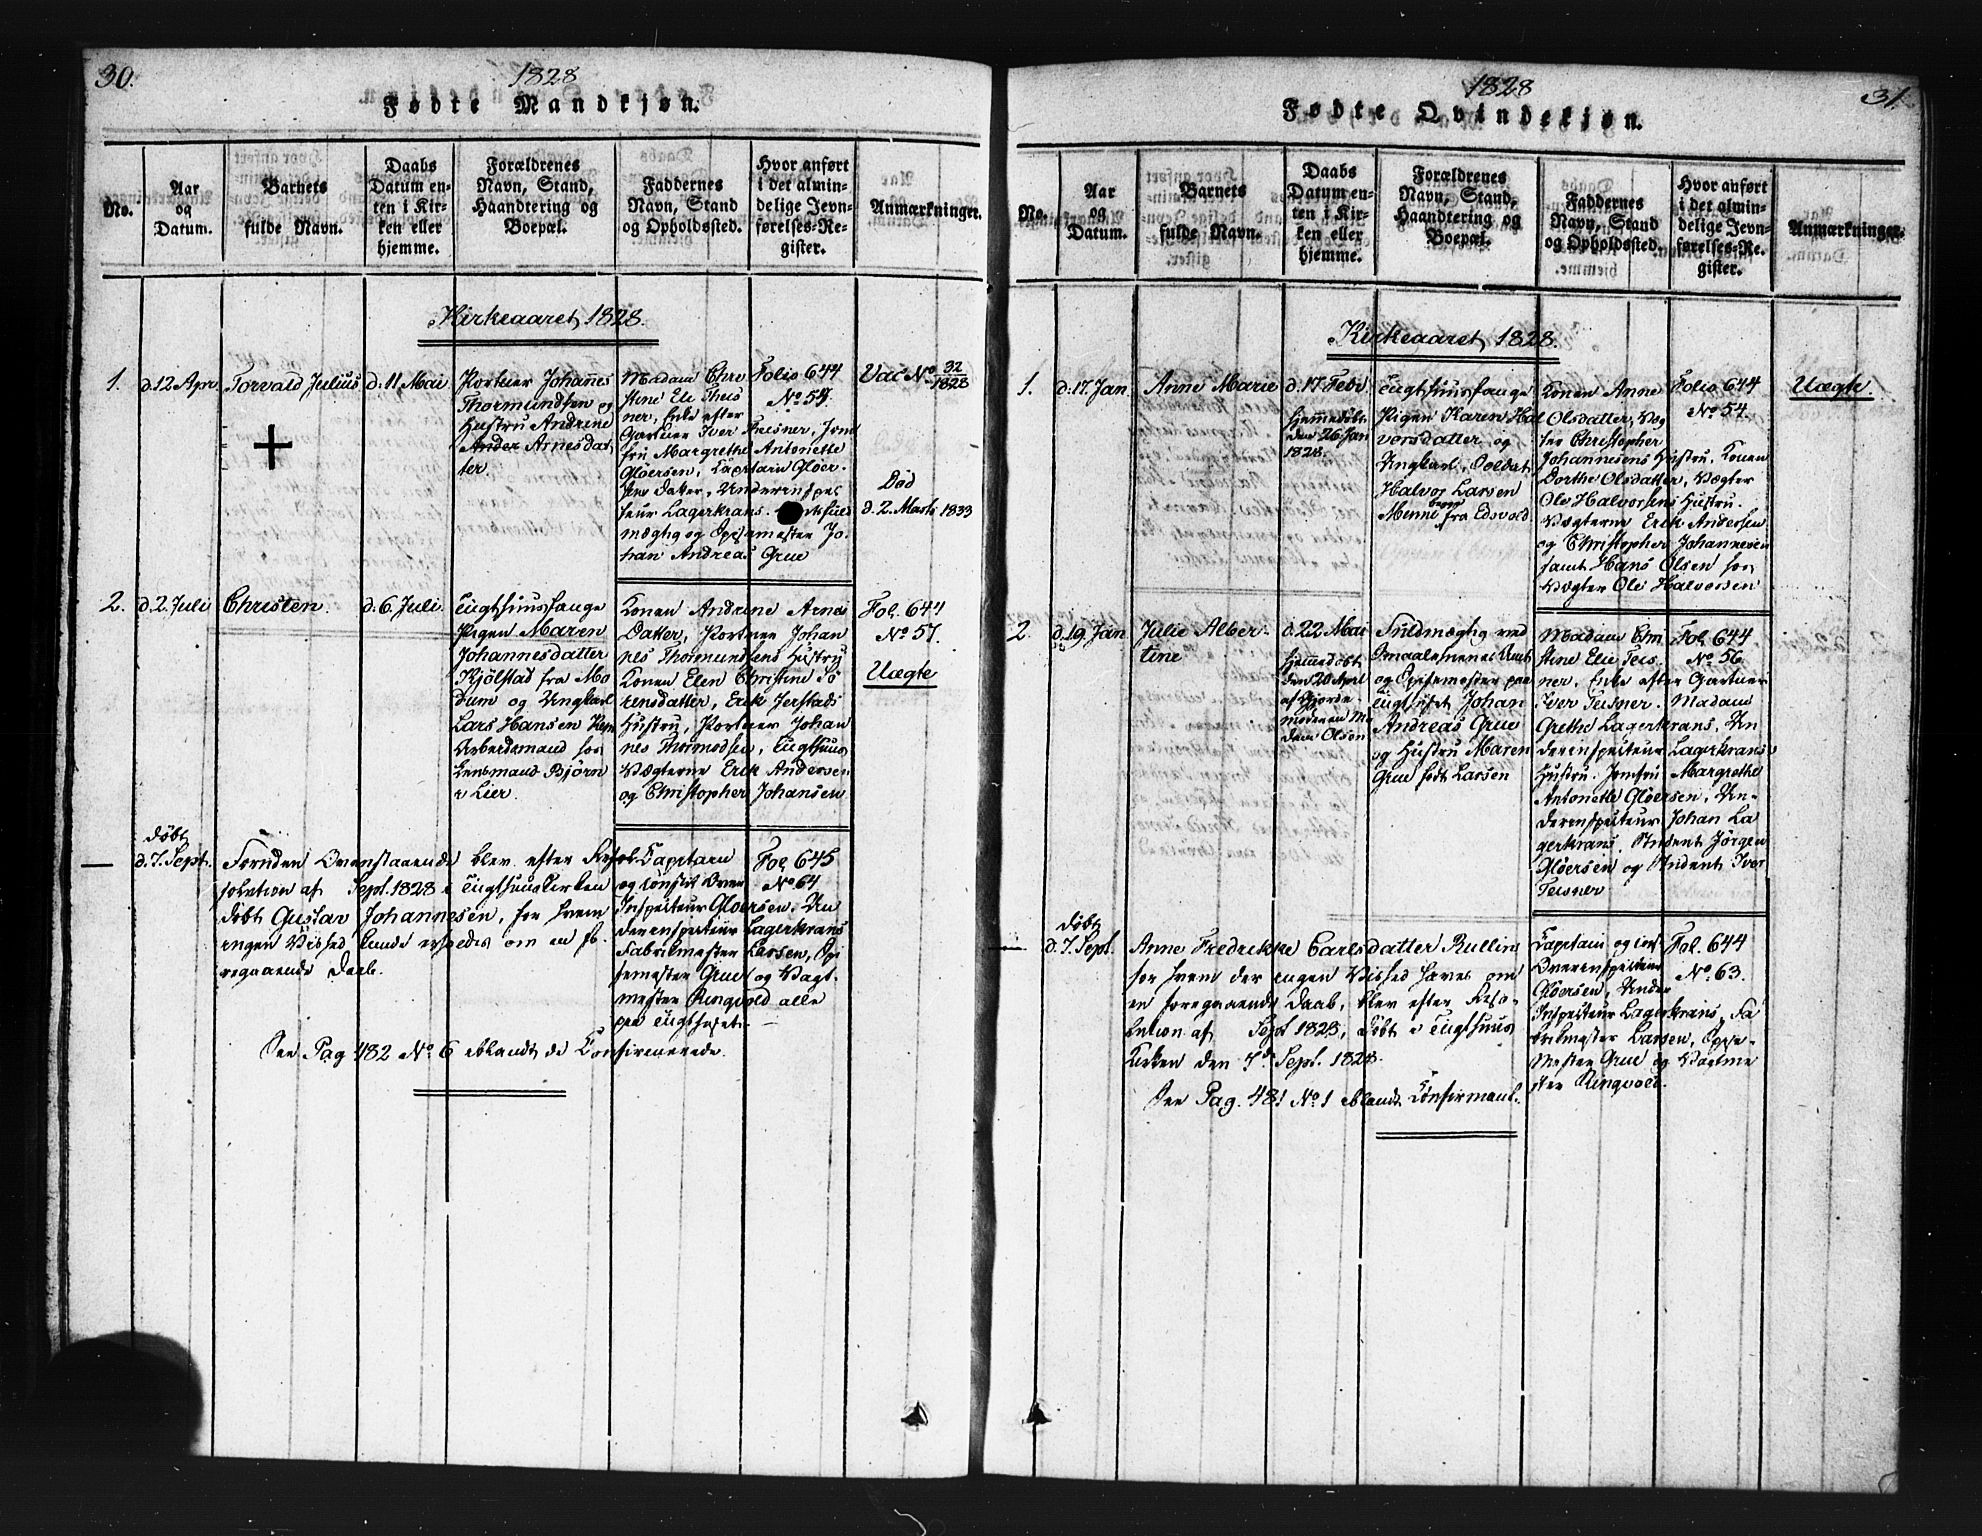 30.
1828
Fødte Mandkjøn.
No.
Aar
og
Datum.
Barnets
fulde Navn.
Daabs
Datum en-
ten i Kir-
ken eller
hjemme.
Forældrenes
Navn, Stand,
Haandtering og
Boepæl.
Faddernes
Navn, Stand
og Opholdssted.
Hvor anført
i det almin-
delige Jevn-
førelses-Re-
gister.
Anmærkninger.
Kirkeaaret 1828.
1.
d. 12 Apr
Torvald Julius
d. 11 Mai
Portner Johannes
Thormundsen og
Hustru Andrine
Arnesdat
ter.
Madam Chri
stine Elie Theis
ner, Enke efter
Gartner Iver Theisner, Jom
fru Margrethe Antonette
Gløersen, Capitain Gløer-
sens Datter, Underinspec
teur Lagerkrans.
mægtig og Spisemester Jo
han Andreas Grue
Folio 644
No 54.
Vac No 32/1828
Død
d. 2 Marts 1833
2.
d. 2 Juli
Christen
d. 6 Juli
Tugthuusfange
Pigen Maren
Johannesdatter
Kjølstad fra Mo
dum og Ungkarl
Lars Hansen
Arbeidsmand hos
Lensmand Bjørn
i Lier.
Konen Andrine Arnes
Datter, Portner Johan
nes Thormundsens Hustru
Konen Elen Christine So
rensdatter, Erik Jerstads
Hustru, Portner Johan
nes Thormodsen, Tugthuus
Vægterne Erik Andersen
og Christopher Johansen
Fol. 644
No 57.
Uægte
døbt
d. 7. Sept.
Foruden Ovenstaaende blev efter Reso
lution af Sept. 1828 i Tugthuuskirken
døbt Gustav Johannesen, for hvem
ingen Vished kunde erholdes om en fo-
regaaende Daab.
Capitain
og const Over
Inspecteur Gløersen, Un
derinspecteur Lagerkrans
Fabrikmester Larsen, Spi
semester Grue og Vagt-
mester Ringvold alle
paa Tugthuset.
Fol. 645
No 64
See Pag 482 No 6 iblandt de Confirmerede.
1828
31
Fødte Qvindekjøn.
No.
Aar
og
Datum.
Barnets
fulde Navn.
Daabs
Datum en-
ten i Kir-
ken eller
hjemme.
Forældrenes
Navn, Stand,
Haandtering og
Boepæl.
Faddernes
Navn, Stand
og Opholdssted.
Hvor anført
i det almin-
delige Jevn-
førelses-Re-
gister.
Anmærkninger.
Kirkeaaret 1828.
1.
d. 17. Jan
Anne Marie
d. 17. Febr
Hjemmedøbt
den 26 Jan
1828.
Tugthuusfange
Pigen Karen Hal
vorsdatter og
Ungkarl, Soldat
Halvor Larsen
Menne fra Edsvold
Konen Anne
Olsdatter, Væg
ter Christopher
Johannesens Hustru. Konen
Dorthe Olsdatter, Vægter
Ole Halvorsens Hustru.
Vægterne Erik Andersen
og Christopher Johannesen
samt Hans Olsen hos
Vægter Ole Halvorsen
Folio 644
No 54.
Uægte
2.
d. 19 Jan
Julie Alber-
tine
d. 22 Mai
Hjemmedøbt
den 20 April
af Gjorde
moderen Ma
dam Olsen
Fuldmægtig ved
og Spisemester paa
Tugthuset Johan
Andreas Grue
og Hustru Maren
Grue født Larsen
Madam Chri
stine Elie Teis
ner, Enke efter Gartner
Iver Teisner. Madam
Grethe Lagerkrans, Un
derinspecteur Lagerkrans
Hustru. Jomfru Margrethe
Antonette Gløersen, Un-
derinspecteur Johan La
gerkrans, Student Jørgen
Gløersen og Student Iver
Teisner
Fol 644
No 56
døbt
d. 7. Sept.
Anne Fredrikke Carlsdatter Rulling
for hvem der ingen Vished haves om
en foregaaende Daab, blev efter Reso-
lution af Sept 1828, døbt i Tugthuus
Kirken den 7de Sept. 1828.
Capitain og const
Overinspecteur
Gløersen, Under
Inspecteur Lagerkrans, Fa
brikmester Larsen, Spise-
Mester Grue og Vagtme
ster Ringvold.
Fol. 644
No 63.
See Pag. 481 No 1 iblandt Confirmant.